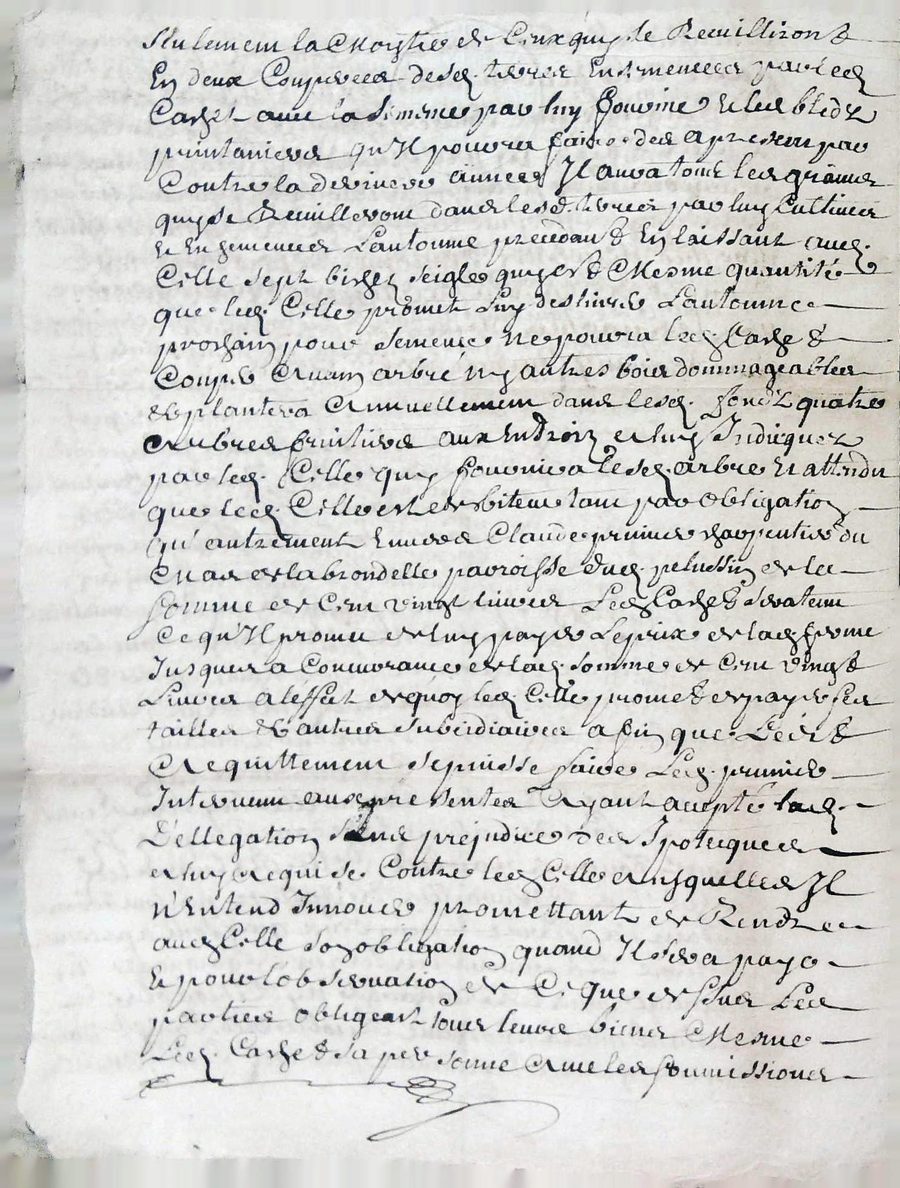 seulement la moytié de ceux quy se Recuilliront
En deux Couppees desd. terres Ensemencees par led
Carzet avec la semence par luy fournie et les bledz
printaniers qu'Il pourra faire des apresent par
Contre la derniere annee Il aura tous les grains
quy se Recuilleront dans lesd. terres par luy Cultivees
et Ensemencees Lautomne precedant En laissant aud.
Cille sept bichez seigle quy est Mesme quantité
que led. Cille promet luy deslivrer Lautomne
prochain pour semence ne poura led. Carzet
Couper Aucun arbre ny autres bois dommageables
et plantera Annuellement dans lesd. fondz quatre
Arbres fruitiers aux Endroitz et luy Indiquez
par led. Cille quy fournira lesd. arbre et attendu
que led. Cille est debiteur tant par obligation
qu'autrement Envers Claude prunier charpentier du
Mas de la brondelle parroisse dud. pelussin de la
somme de Cent vingt livres Led. Carzet sera tenu
Ce qu'Il promet de luy payer Le prix de lad. ferme
Jusques a Concurance de lad. somme de Cent vingt
Livres a l'effect de quoy led. Cille promet de payer les
tailles et autres subcidiaires afin que Led.
Acquittement se puisse faire Led. prunier
Intervenu aux presentes Ayant accepté lad.
Dellegation sans prejudice des Ipoteques
et luy acquise Contre led. Cille ausquelles Il
n'Entend Innover promettant de Rendre
aud. Cille son obligation quand Il sera payé
Et pour l'observation de Ce que dessus Les
parties obligeant tous leurs biens Mesme
Led. Carzet sa personne Avec les soumissions